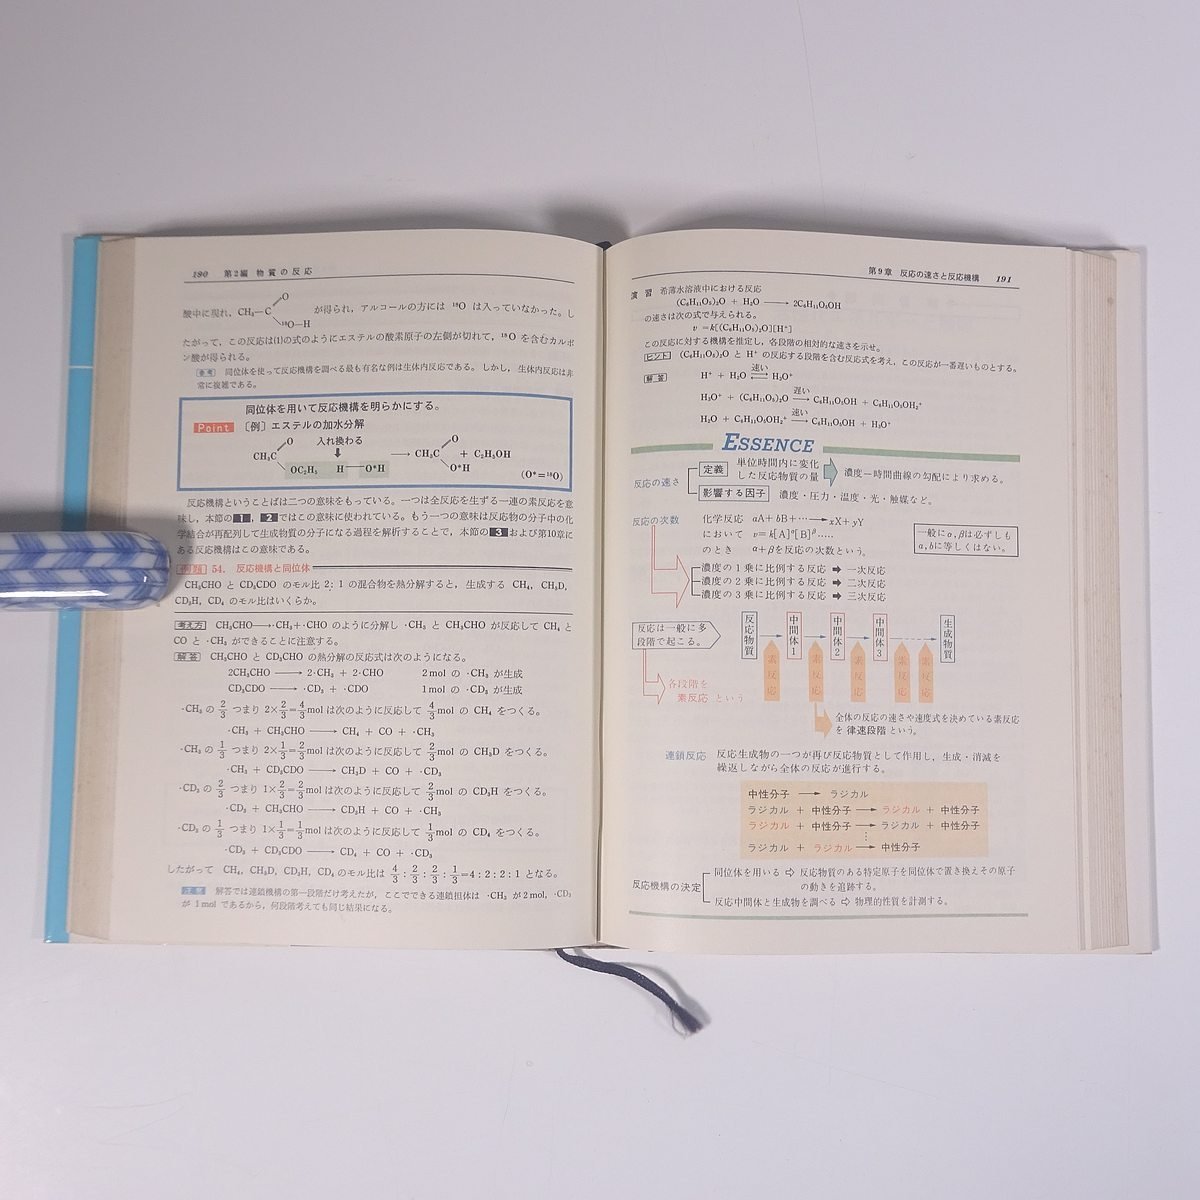 190 第2編 物質の反応
酸中に現れ, CH₃—C O ¹⁸O—H が得られ, アルコールの方には ¹⁸O は入っていなかった。し
たがって, この反応は(1)の式のようにエステルの酸素原子の左側が切れて, ¹⁸O を含むカルボ
ン酸が得られる。
参考 同位体を使って反応機構を調べる最も有名な例は生体内反応である。しかし, 生体内反応は非
常に複雑である。
同位体を用いて反応機構を明らかにする。
Point 〔例〕エステルの加水分解
O 入れ換わる O
CH₃C → CH₃C + C₂H₅OH
OC₂H₅ H—O*H O*H (O*=¹⁸O)
反応機構ということばは二つの意味をもっている。一つは全反応を生ずる一連の素反応を意
味し, 本節の 1 , 2 ではこの意味に使われている。もう一つの意味は反応物の分子中の化
学結合が再配列して生成物質の分子になる過程を解析することで, 本節の 3 および第10章に
ある反応機構はこの意味である。
例題 54. 反応機構と同位体
CH₃CHO と CD₃CDO のモル比 2:1 の混合物を熱分解すると, 生成する CH₄, CH₃D,
CD₃H, CD₄ のモル比はいくらか。
考え方 CH₃CHO→·CH₃+·CHO のように分解し ·CH₃ と CH₃CHO が反応して CH₄ と
CO と ·CH₃ ができることに注意する。
解答 CH₃CHO と CD₃CDO の熱分解の反応式は次のようになる。
2CH₃CHO → 2·CH₃ + 2·CHO 2mol の ·CH₃ が生成
CD₃CDO → ·CD₃ + ·CDO 1mol の ·CD₃ が生成
·CH₃ の 2/3 つまり 2×2/3=4/3mol は次のように反応して 4/3mol の CH₄ をつくる。
·CH₃ + CH₃CHO → CH₄ + CO + ·CH₃
·CH₃ の 1/3 つまり 2×1/3=2/3mol は次のように反応して 2/3mol の CH₃D をつくる。
·CH₃ + CD₃CDO → CH₃D + CO + ·CD₃
·CD₃ の 2/3 つまり 1×2/3=2/3mol は次のように反応して 2/3mol の CD₃H をつくる。
·CD₃ + CH₃CHO → CD₃H + CO + ·CH₃
·CD₃ の 1/3 つまり 1×1/3=1/3mol は次のように反応して 1/3mol の CD₄ をつくる。
·CD₃ + CD₃CDO → CD₄ + CO + ·CD₃
したがって CH₄, CH₃D, CD₃H, CD₄ のモル比は 4/3:2/3:2/3:1/3=4:2:2:1 となる。
注意 解答では連鎖機構の第一段階だけ考えたが, ここでできる連鎖担体は ·CH₃ が 2mol, ·CD₃
が 1mol であるから, 何段階考えても同じ結果になる。
第9章 反応の速さと反応機構 191
演習 希薄水溶液中における反応
(C₆H₁₁O₅)₂O + H₂O → 2C₆H₁₁O₅OH
の速さは次の式で与えられる。
v = k[(C₆H₁₁O₅)₂O][H⁺]
この反応に対する機構を推定し, 各段階の相対的な速さを示せ。
ヒント (C₆H₁₁O₅)₂O と H⁺ の反応する段階を含む反応式を考え, この反応が一番遅いものとする。
解答 H⁺ + H₂O 速い ⇄ H₃O⁺
H₃O⁺ + (C₆H₁₁O₅)₂O 遅い → C₆H₁₁O₅OH + C₆H₁₁O₅OH₂⁺
H₂O + C₆H₁₁O₅OH₂⁺ 速い → C₆H₁₁O₅OH + H₃O⁺
ESSENCE
反応の速さ 定義 単位時間内に変化した反応物質の量 ⇨ 濃度—時間曲線の勾配により求める。
影響する因子 濃度・圧力・温度・光・触媒など。
反応の次数 化学反応 aA+bB+…→xX+yY
において v=k[A]^α[B]^β……
のとき α+βを反応の次数という。
一般にα, βは必ずしも
a, bに等しくはない。
濃度の1乗に比例する反応 ➡ 一次反応
濃度の2乗に比例する反応 ➡ 二次反応
濃度の3乗に比例する反応 ➡ 三次反応
反応は一般に多
段階で起こる。
反応物質 → 中間体1 → 中間体2 → 中間体3 → 生成物質
素反応 素反応 素反応 素反応 素反応
各段階を
素反応 という
全体の反応の速さや速度式を決めている素反応
を 律速段階 という。
連鎖反応 反応生成物の一つが再び反応物質として作用し, 生成・消滅を
繰返しながら全体の反応が進行する。
中性分子 → ラジカル
ラジカル + 中性分子 → ラジカル + 中性分子
ラジカル + 中性分子 → ラジカル + 中性分子
⋮
ラジカル + ラジカル → 中性分子
反応機構の決定
同位体を用いる ⇨ 反応物質のある特定原子を同位体で置き換えその原子
の動きを追跡する。
反応中間体と生成物を調べる ⇨ 物理的性質を計測する。